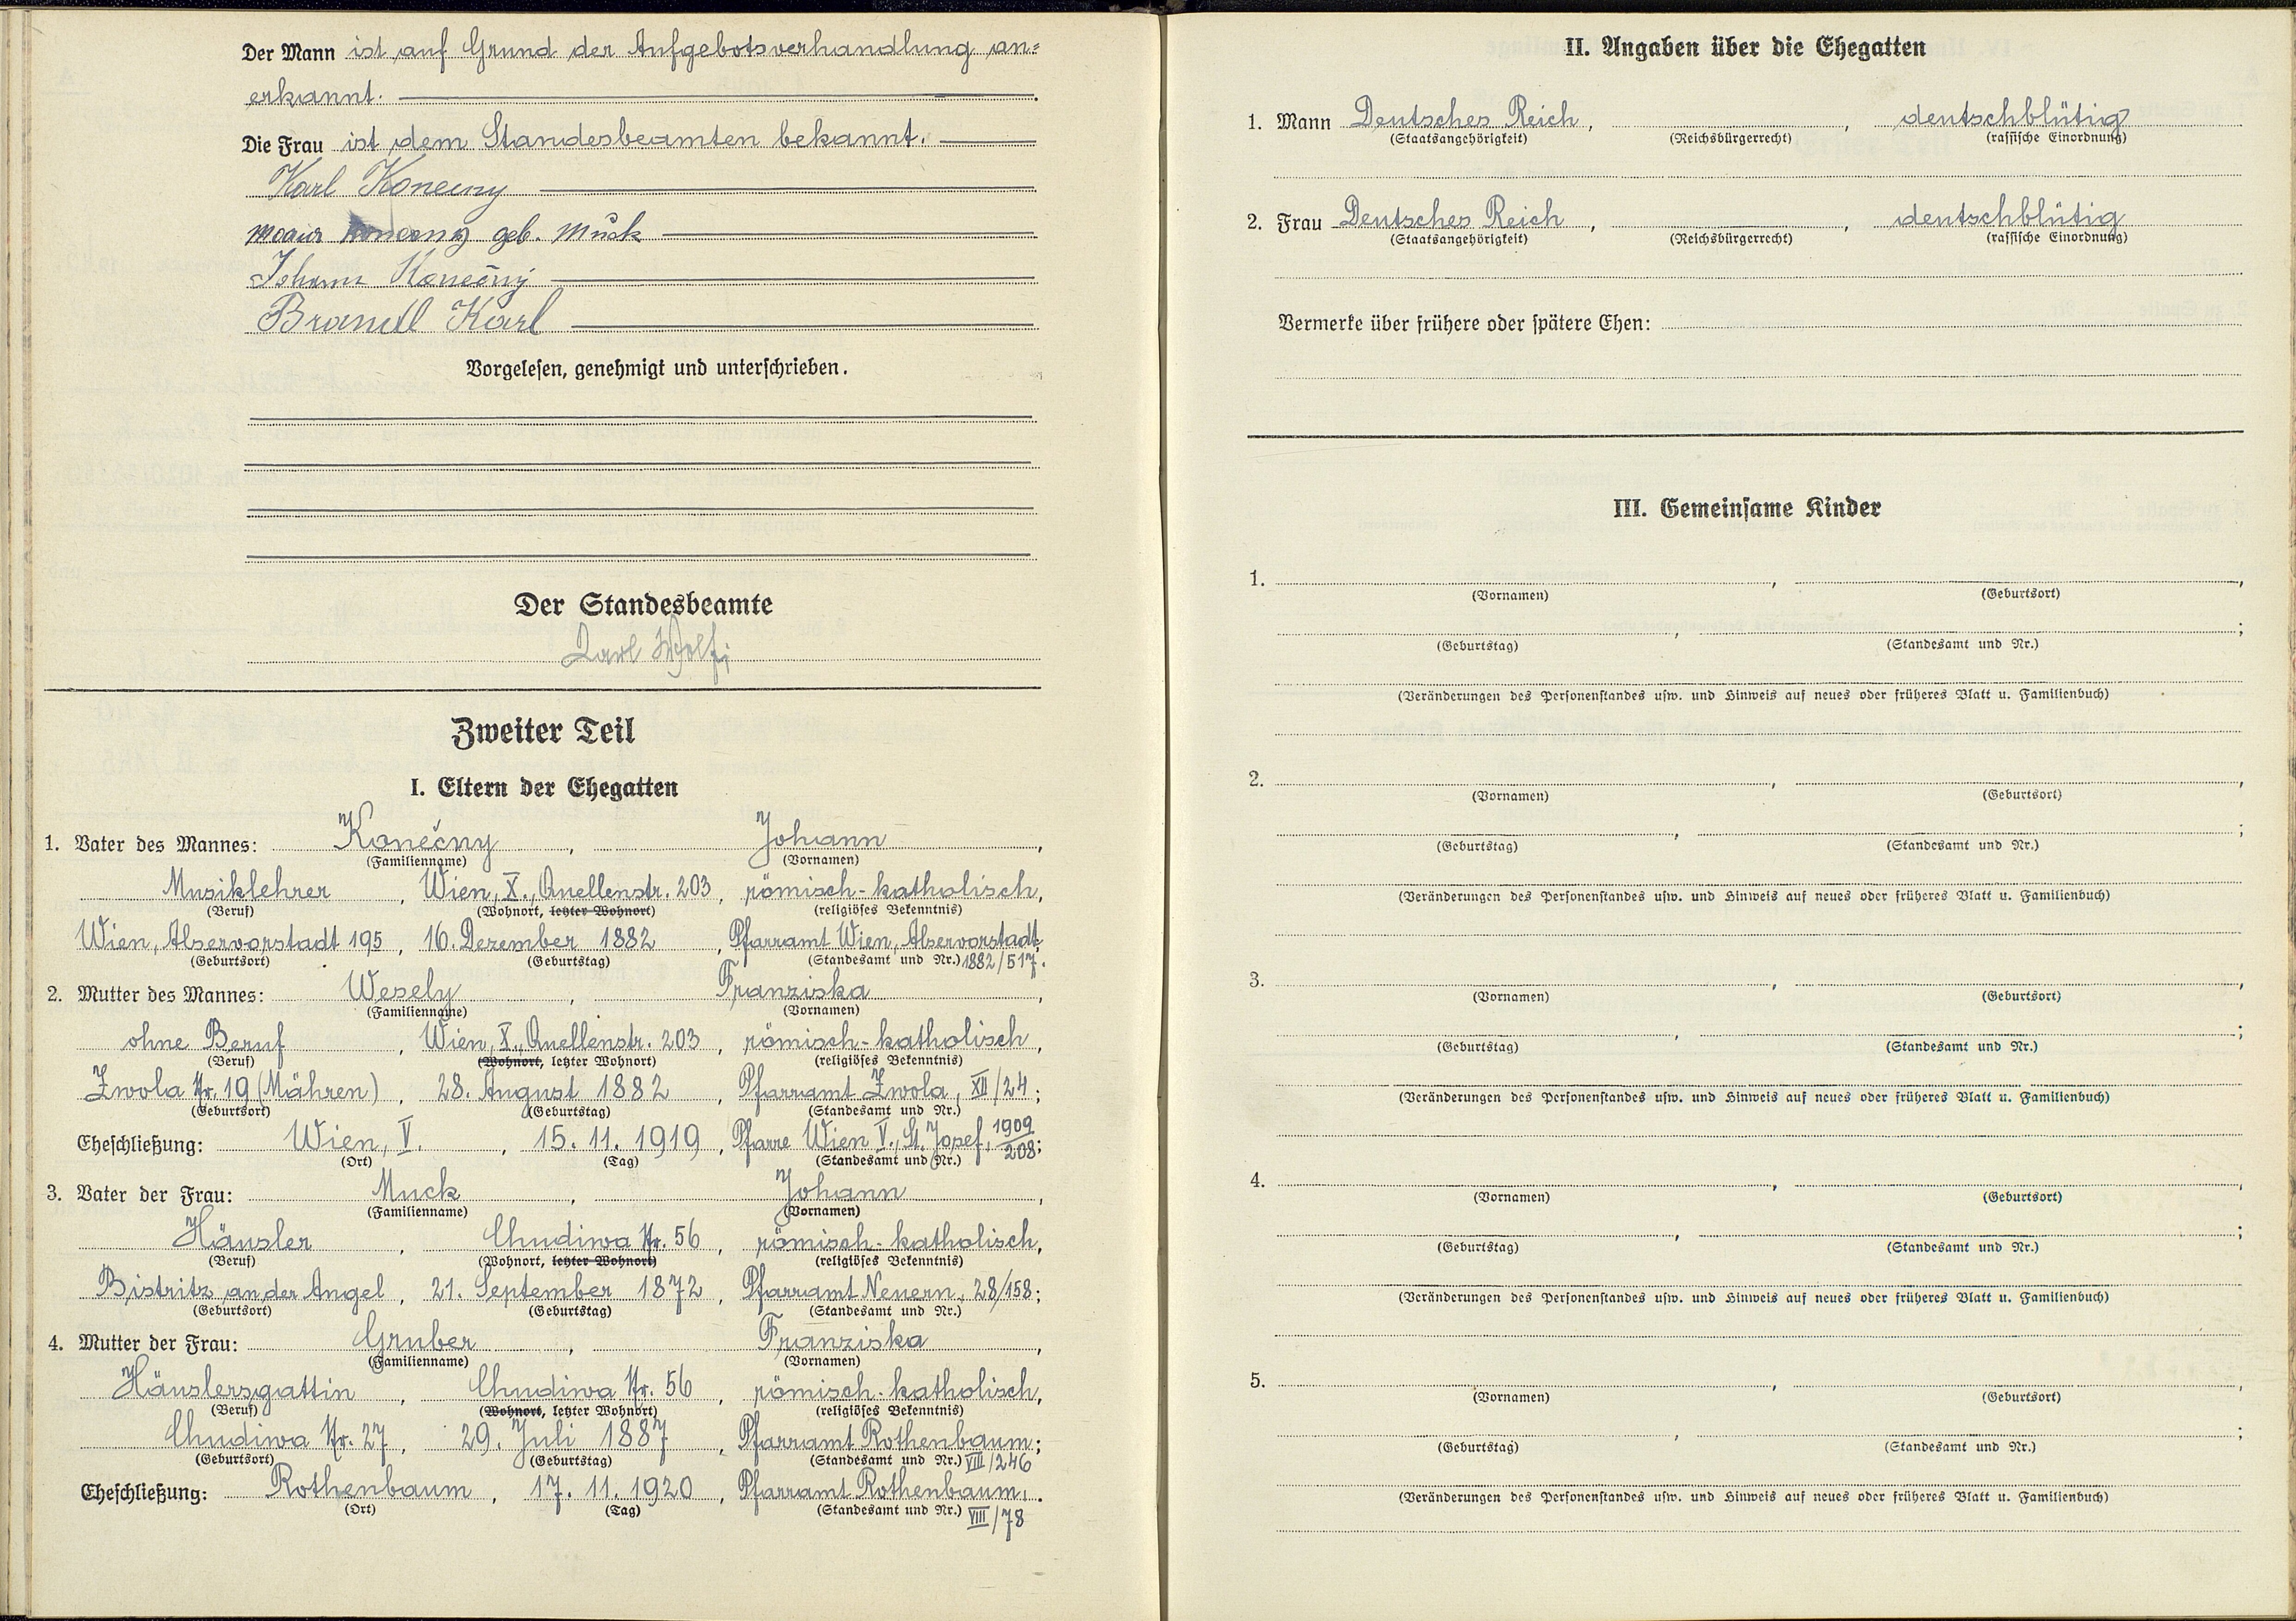 Der Mann ist auf Grund der Aufgebotsverhandlung an=
erkannt.
Die Frau ist dem Standesbeamten bekannt.
Karl Konecny
Maria Konecny geb. Muck
Johann Konečný
Brandl Karl
Vorgelesen, genehmigt und unterschrieben.
Der Standesbeamte
Karl Wolf;
Zweiter Teil
I. Eltern der Ehegatten
1. Vater des Mannes: Konečny, Johann,
(Familienname) (Vornamen)
Musiklehrer, Wien, X., Quellenstr. 203, römisch-katholisch,
(Beruf) (Wohnort, letzter Wohnort) (religiöses Bekenntnis)
Wien, Alservorstadt 195, 16. Dezember 1882, Pfarramt Wien, Alservorstadt,
(Geburtsort) (Geburtstag) (Standesamt und Nr.) 1882/517.
2. Mutter des Mannes: Wesely, Franziska,
(Familienname) (Vornamen)
ohne Beruf, Wien, X., Quellenstr. 203, römisch-katholisch,
(Beruf) (Wohnort, letzter Wohnort) (religiöses Bekenntnis)
Zwola Nr. 19 (Mähren), 28. August 1882, Pfarramt Zwola, XII/24;
(Geburtsort) (Geburtstag) (Standesamt und Nr.)
Eheschließung: Wien, V., 15. 11. 1919, Pfarre Wien V., St. Josef, 1909/208;
(Ort) (Tag) (Standesamt und Nr.)
3. Vater der Frau: Muck, Johann,
(Familienname) (Vornamen)
Häusler, Chudiwa Nr. 56, römisch-katholisch,
(Beruf) (Wohnort, letzter Wohnort) (religiöses Bekenntnis)
Bistritz an der Angel, 21. September 1872, Pfarramt Neuern, 28/158;
(Geburtsort) (Geburtstag) (Standesamt und Nr.)
4. Mutter der Frau: Gruber, Franziska,
(Familienname) (Vornamen)
Häuslersgattin, Chudiwa Nr. 56, römisch-katholisch,
(Beruf) (Wohnort, letzter Wohnort) (religiöses Bekenntnis)
Chudiwa Nr. 27, 29. Juli 1887, Pfarramt Rothenbaum;
(Geburtsort) (Geburtstag) (Standesamt und Nr.) VIII/246
Eheschließung: Rothenbaum, 17. 11. 1920, Pfarramt Rothenbaum,
(Ort) (Tag) (Standesamt und Nr.) VIII/78
II. Angaben über die Ehegatten
1. Mann Deutsches Reich, , deutschblütig
(Staatsangehörigkeit) (Reichsbürgerrecht) (rassische Einordnung)
2. Frau Deutsches Reich, , deutschblütig
(Staatsangehörigkeit) (Reichsbürgerrecht) (rassische Einordnung)
Vermerke über frühere oder spätere Ehen:
III. Gemeinsame Kinder
1. , ,
(Vornamen) (Geburtsort)
, ;
(Geburtstag) (Standesamt und Nr.)
(Veränderungen des Personenstandes usw. und Hinweis auf neues oder früheres Blatt u. Familienbuch)
2. , ,
(Vornamen) (Geburtsort)
, ;
(Geburtstag) (Standesamt und Nr.)
(Veränderungen des Personenstandes usw. und Hinweis auf neues oder früheres Blatt u. Familienbuch)
3. , ,
(Vornamen) (Geburtsort)
, ;
(Geburtstag) (Standesamt und Nr.)
(Veränderungen des Personenstandes usw. und Hinweis auf neues oder früheres Blatt u. Familienbuch)
4. , ,
(Vornamen) (Geburtsort)
, ;
(Geburtstag) (Standesamt und Nr.)
(Veränderungen des Personenstandes usw. und Hinweis auf neues oder früheres Blatt u. Familienbuch)
5. , ,
(Vornamen) (Geburtsort)
, ;
(Geburtstag) (Standesamt und Nr.)
(Veränderungen des Personenstandes usw. und Hinweis auf neues oder früheres Blatt u. Familienbuch)